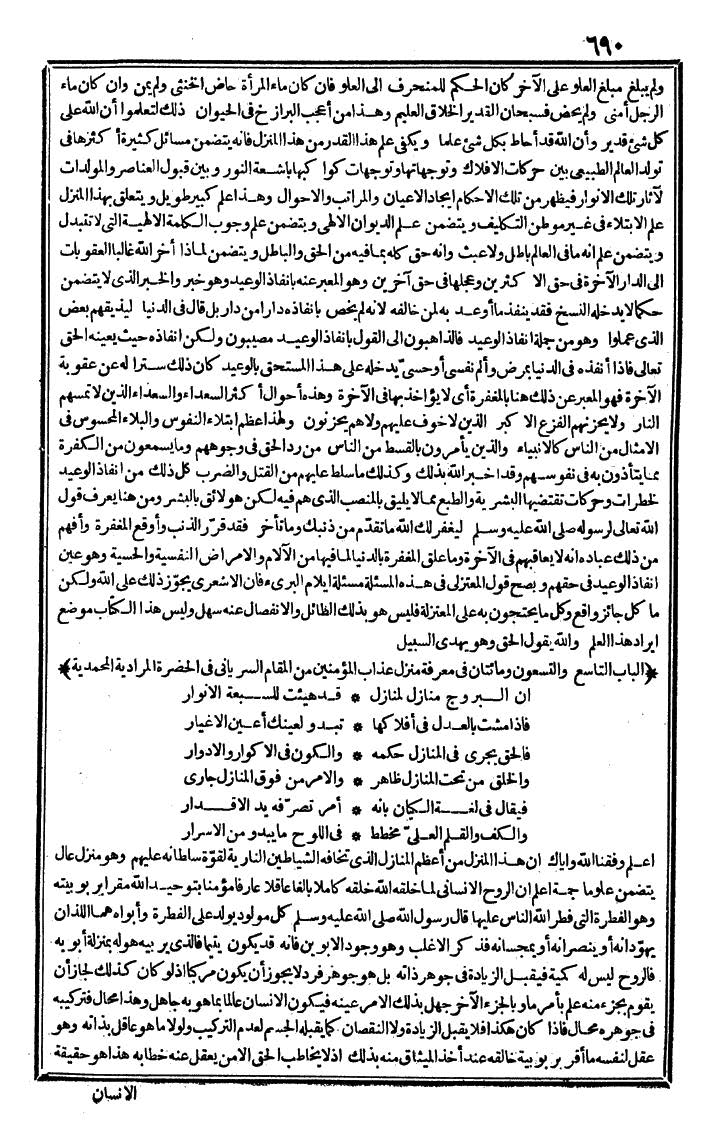 ٦٩٠
ولم يبلغ مبلغ العلو على الآخر كان الحكم للمنحرف الى العلو فان كان ماء المرأة حاض الخنثى ولم يمن وان كان ماء
الرجل أمنى ولم يحض فسبحان القدير الخلاق العليم وهذا من أعجب البرازخ فى الحيوان ذلك لتعلموا أن الله على
كل شئ قدير وأن الله قد أحاط بكل شئ علما ويكفى علم هذا القدر من هذا المنزل فانه يتضمن مسائل كثيرة أكثرها فى
تولد العالم الطبيعى بين حركات الافلاك وتوجهاتها وتوجهات كواكبها باشعة النور وبين قبول العناصر والمولدات
لآثار تلك الانوار فيظهر من تلك الاحكام ايجاد الاعيان والمراتب والاحوال وهذا علم كبير طويل ويتعلق بهذا المنزل
علم الابتلاء فى غير موطن التكليف ويتضمن علم الديوان الالهى ويتضمن علم وجوب الكلمة الالهية التى لا تتبدل
ويتضمن علم انه ما فى العالم باطل ولا عبث وانه حق كله بما فيه من الحق والباطل ويتضمن لماذا أخر الله غالبا العقوبات
الى الدار الآخرة فى حق الاكثرين وعجلها فى حق آخرين وهو المعبر عنه بانفاذ الوعيد وهو خبر والخبر الذى لا يتضمن
حكما لا يدخله النسخ فقد ينفذ ما أوعد به لمن خالفه لانه لم يخص بانفاذه دارا من دار بل قال فى الدنيا ليذيقهم بعض
الذى عملوا وهو من جملة انفاذ الوعيد فالذاهبون الى القول بانفاذ الوعيد مصيبون ولكن انفاذه حيث يعينه الحق
تعالى فاذا أنفذه فى الدنيا بمرض وألم نفسى أو حسىّ يدخله على هذا المستحق بالوعيد كان ذلك سترا له عن عقوبة
الآخرة فهو المعبر عن ذلك هنا بالمغفرة أى لا يؤاخذ بها فى الآخرة وهذه أحوال أكثر السعداء والسعداء الذين لا تمسهم
النار ولا يحزنهم الفزع الاكبر الذين لا خوف عليهم ولا هم يحزنون ولهذا عظم ابتلاء النفوس والبلاء المحسوس فى
الامثال من الناس كالانبياء والذين يأمرون بالقسط من الناس من رد الحق فى وجوههم وما يسمعون من الكفرة
مما يتأذون به فى نفوسهم وقد اخبر الله بذلك وكذلك ما سلط عليهم من القتل والضرب كل ذلك من انفاذ الوعيد
لخطرات وحركات تقتضيها البشرية والطبع مما لا يليق بالمنصب الذى هم فيه لكن هو لائق بالبشر ومن هنا يعرف قول
الله تعالى لرسوله صلى الله عليه وسلم ليغفر لك الله ما تقدّم من ذنبك وما تأخر فقد قرّر الذنب وأوقع المغفرة وأفهم
من ذلك عباده انه لا يعاقبهم فى الآخرة وما علق المغفرة بالدنيا لما فيها من الآلام والامراض النفسية والحسية وهو عين
انفاذ الوعيد فى حقهم ويصح قول المعتزلى فى هذه المسئلة مسئلة ايلام البرىء فان الاشعرى يجوّز ذلك على الله ولكن
ما كل جائز واقع وكل ما يحتجون به على المعتزلة فليس هو بذلك الطائل والانفصال عنه سهل وليس هذا الكتاب موضع
ايراد هذا العلم والله يقول الحق وهو يهدى السبيل
﴿الباب التاسع والتسعون ومائتان فى معرفة منزل عذاب المؤمنين من المقام السريانى فى الحضرة المرادية المحمدية﴾
ان البروج منازل لمنازل * قد هيئت للسبعة الانوار
فاذا مشت بالعدل فى أفلاكها * تبدو لعينك أعين الاغيار
فالحق يجرى فى المنازل حكمه * والكون فى الاكوار والادوار
والخلق من تحت المنازل ظاهر * والامر من فوق المنازل جارى
فيقال فى لغة الكيان بانه * أمر تصرّفه يد الاقدار
والكف والقلم العلىّ مخطط * فى اللوح ما يبدو من الاسرار
اعلم وفقنا الله واياك ان هذا المنزل من أعظم المنازل الذى تخافه الشياطين النارية لقوّة سلطانه عليهم وهو منزل عال
يتضمن علوما جمة اعلم ان الروح الانسانى لما خلقه الله خلقه كاملا بالغا عاقلا عارفا مؤمنا بتوحيد الله مقرا بربوبيته
وهو الفطرة التى فطر الله الناس عليها قال رسول الله صلى الله عليه وسلم كل مولود يولد على الفطرة وأبواه هما اللذان
يهوّدانه أو ينصرانه أو يمجسانه فذكر الاغلب وهو وجود الابوين فانه قد يكون يتيما فالذى يربيه هو له بمنزلة أبويه
فالروح ليس له كمية فيقبل الزيادة فى جوهر ذاته بل هو جوهر فرد لا يجوز أن يكون مركبا اذ لو كان كذلك لجاز أن
يقوم بجزء منه علم بأمر ما وبالجزء الآخر جهل بذلك الامر عينه فيكون الانسان عالما بما هو به جاهل وهذا محال فتركيبه
فى جوهره محال فاذا كان هكذا فلا يقبل الزيادة ولا النقصان كما يقبله الجسم لعدم التركيب ولولا ما هو عاقل بذاته وهو
عقل لنفسه ما أقر بربوبية خالقه عند أخذ الميثاق منه بذلك اذ لا يخاطب الحق الا من يعقل عنه خطابه هذا هو حقيقة
الانسان